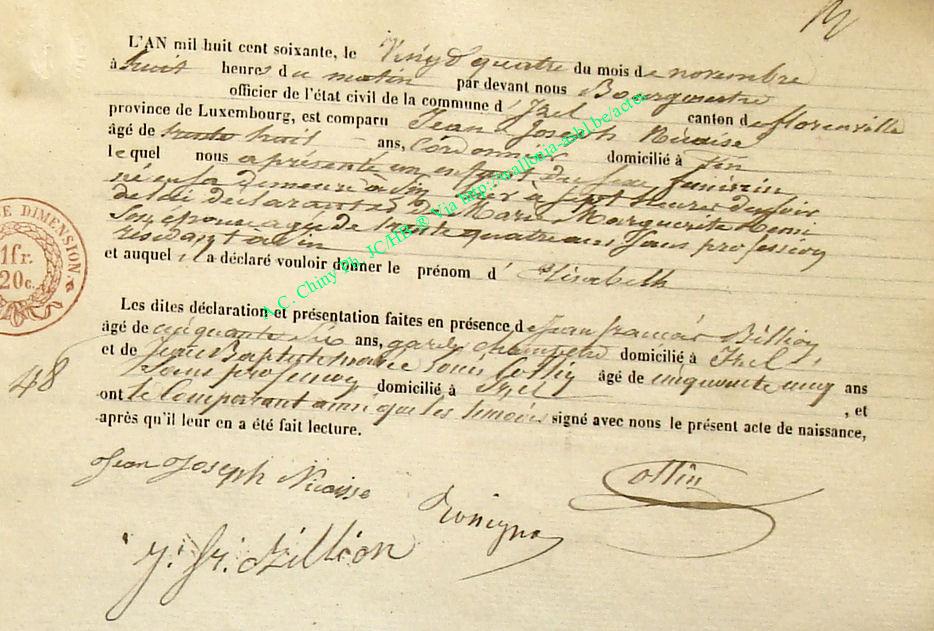 L'AN mil huit cent soixante, le Vingt quatre du mois de novembre
à huit heures du matin par devant nous Bourgmestre
officier de l'état civil de la commune d' Izel canton de florenville
province de Luxembourg, est comparu Jean Joseph Nicaise
âgé de trente huit ans, Cordonnier domicilié à fin
lequel nous a présenté un enfant du sexe feminin
né en sa demeure à fin hier à sept heures du soir
de lui déclarant et de Marie Marguerite Henri
son epouse agée de trente quatre ans sans profession
résidant à fin
et auquel il a déclaré vouloir donner le prénom d' Elisabeth
Les dites déclaration et présentation faites en présence de Jean francois Billion
âgé de cinquante six ans, garde champetre domicilié à Izel
et de Jean Baptiste marie Louis Collin âgé de cinquante cinq ans
sans profession domicilié à Izel , et
ont le Comparant ainsi que les temoins signé avec nous le présent acte de naissance,
après qu'il leur en a été fait lecture.
Jean Joseph Nicaisse
Collin
J. fr. Billion
48
E DIMENSION
1fr.
20c.
A.C. Chiny Ph. JC/HB ® Via http://wallonia-asbl.be/actes